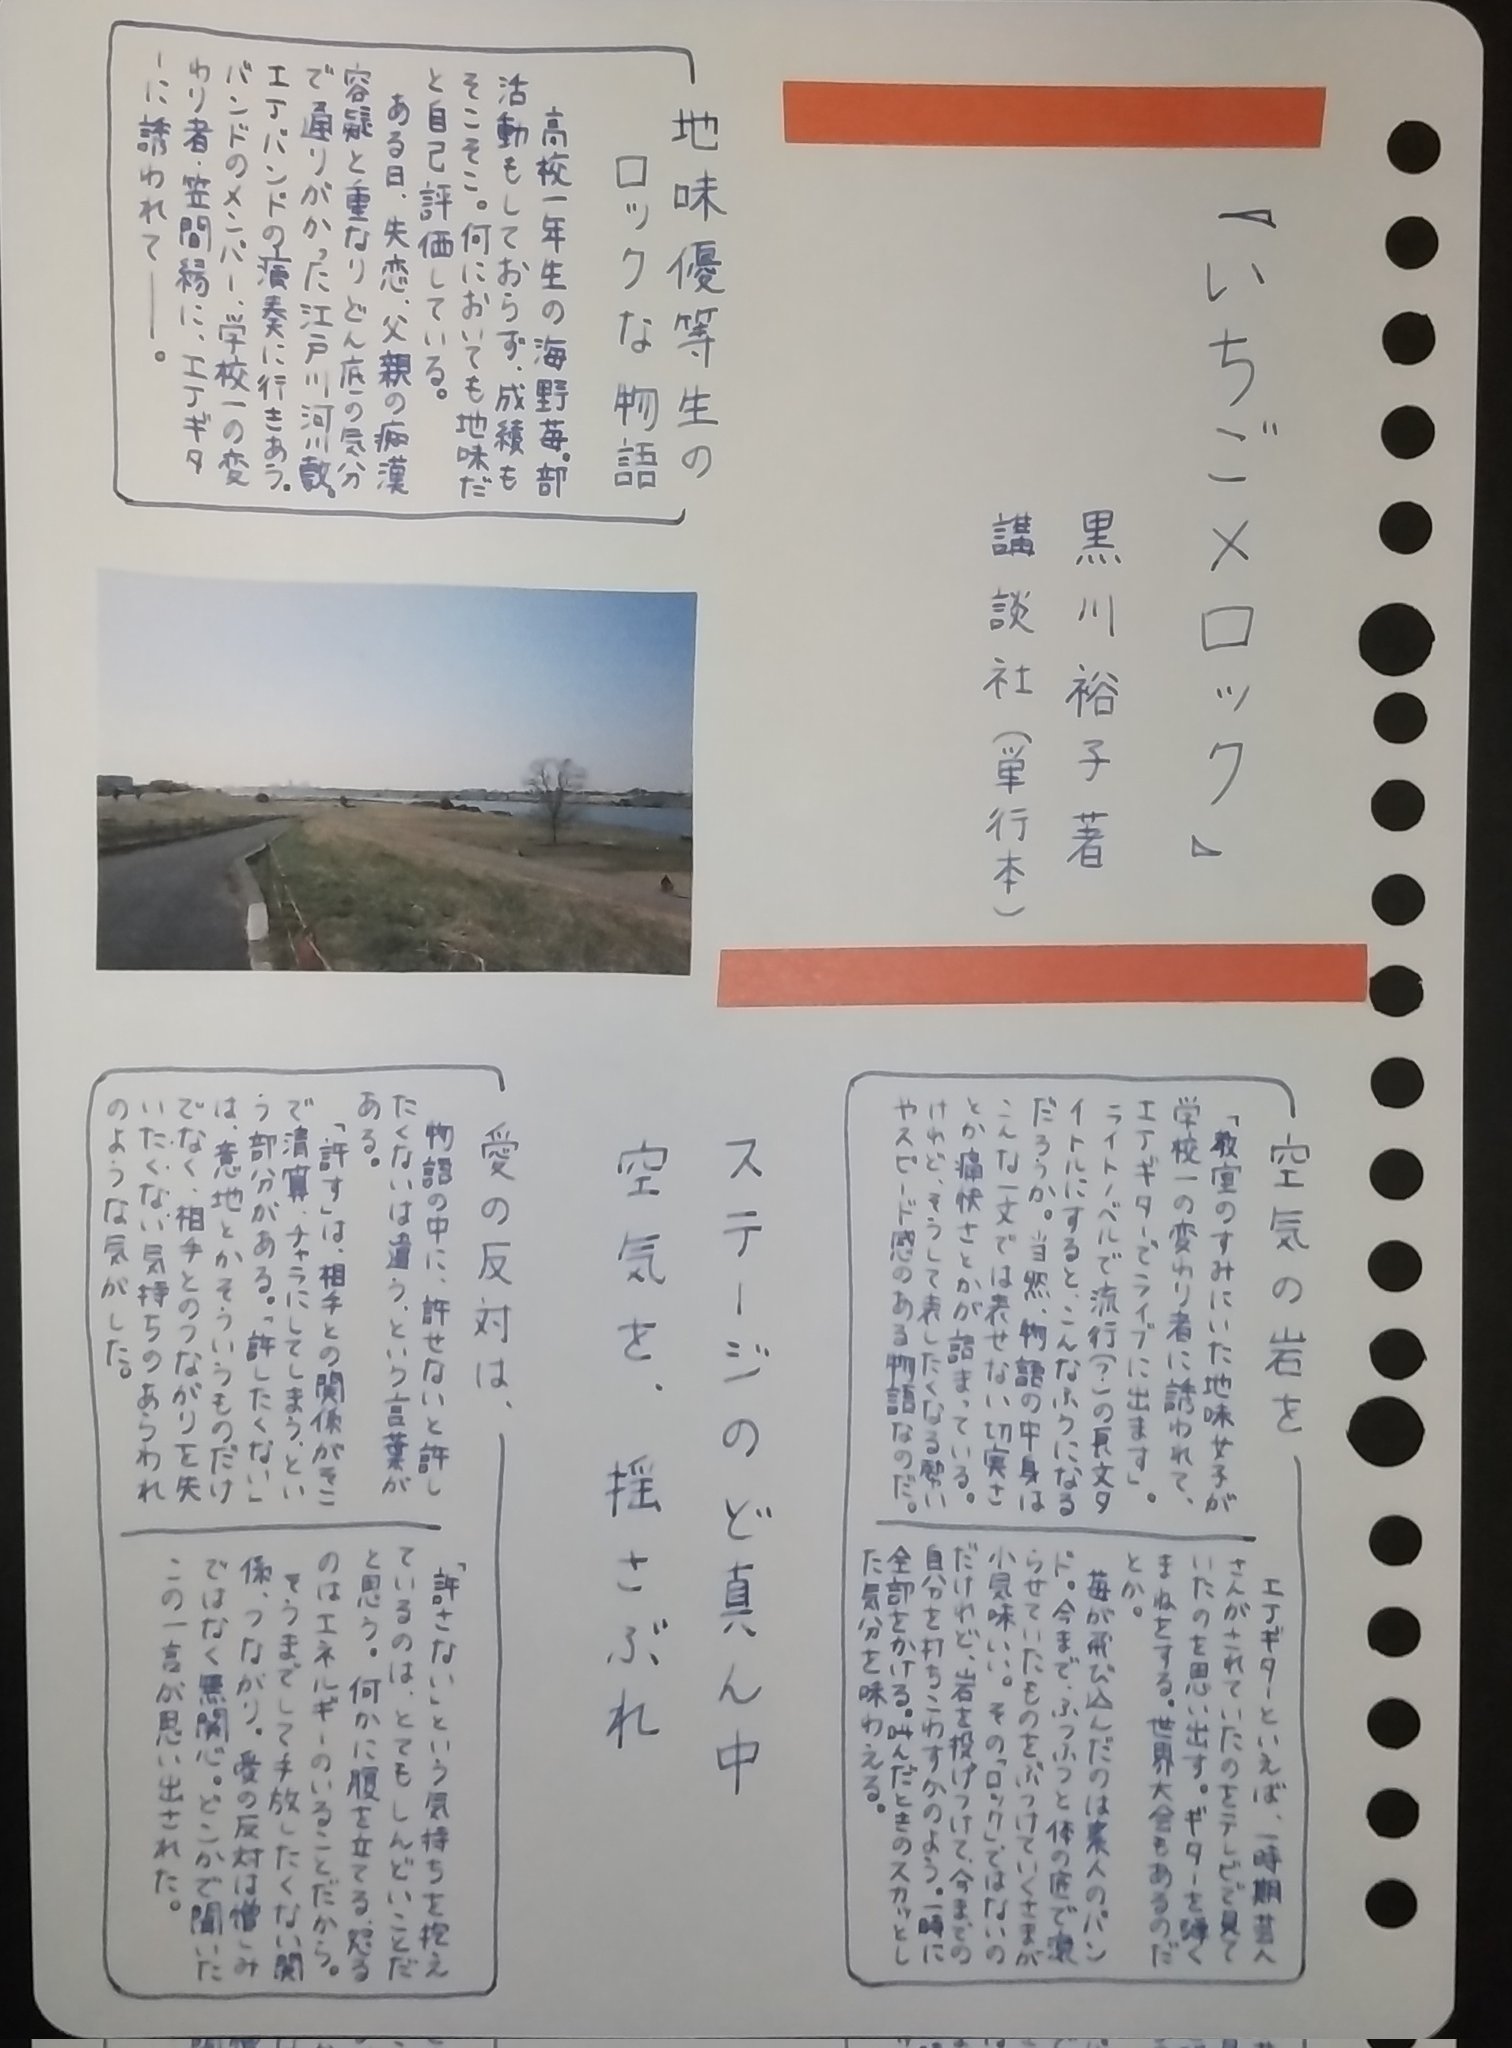 『いちご×ロック』
黒川裕子著
講談社(単行本)
地味優等生の
ロックな物語
高校一年生の海野苺。部
活動もしておらず、成績も
そこそこ。何においても地味だ
と自己評価している。
ある日、失恋、父親の痴漢
容疑と重なりどん底の気分
で通りがかった江戸川河川敷。
エアバンドの演奏に行きあう。
バンドのメンバー、学校一の変
わり者・笠間緑に、エアギタ
ーに誘われて――。
空気の岩を
「教室のすみにいた地味女子が
学校一の変わり者に誘われて、
エアギターでライブに出ます」。
ライトノベルで流行(?)の長文タ
イトルにすると、こんなふうになる
だろうか。当然、物語の中身は
こんな一文では表せない切実さ
とか痛快さとかが詰まっている。
けれど、そうして表したくなる勢い
やスピード感のある物語なのだ。
エアギターといえば、一時期芸人
さんがされていたのをテレビで見て
いたのを思い出す。ギターを弾く
まねをする。世界大会もあるのだ
とか。
苺が飛び込んだのは素人のバン
ド。今まで、ふつふつと体の底で滾
らせていたものをぶつけていくさまが
小気味いい。その「ロック」ではないの
だけれど、岩を投げつけて、今までの
自分を打ちこわすかのよう。一時に
全部をかける。叫んだときのスカッとし
た気分を味わえる。
ステージのど真ん中
空気を、揺さぶれ
愛の反対は、
物語の中に、許せないと許し
たくないは違う、という言葉が
ある。
「許す」は、相手との関係がそこ
で清算、チャラにしてしまう、とい
う部分がある。「許したくない」
は、意地とかそういうものだけ
でなく、相手とのつながりを失
いたくない気持ちのあらわれ
のような気がした。
「許さない」という気持ちを抱え
ているのは、とてもしんどいことだ
と思う。何かに腹を立てる、怒る
のはエネルギーのいることだから。
そうまでして手放したくない関
係、つながり。愛の反対は憎しみ
ではなく無関心。どこかで聞いた
この一言が思い出された。